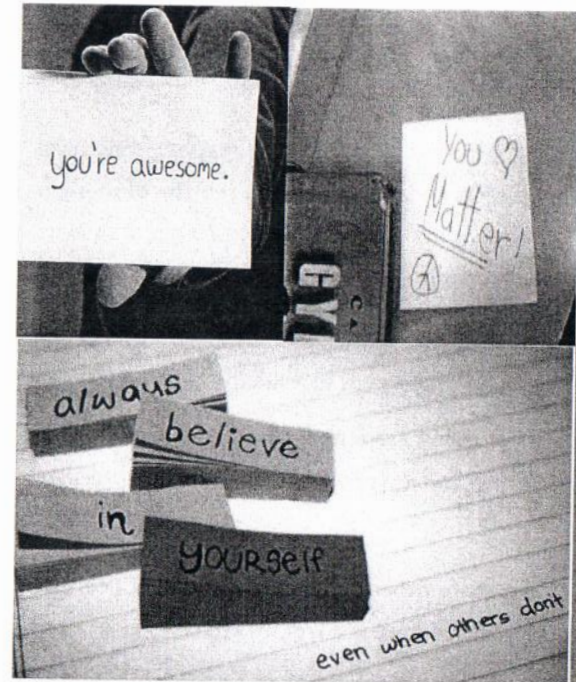 you're awesome.
You ♡
Matter!
always
believe
in
yourself
even when others don't